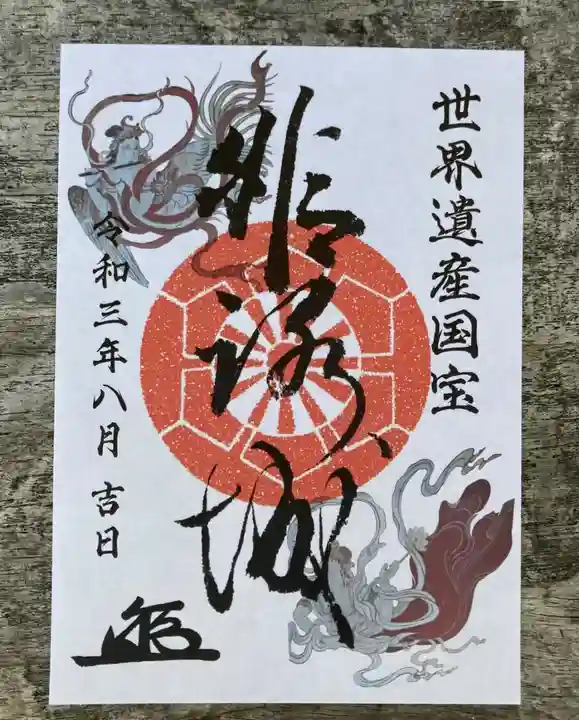 世界遺産国宝
姫路城
令和三年八月吉日